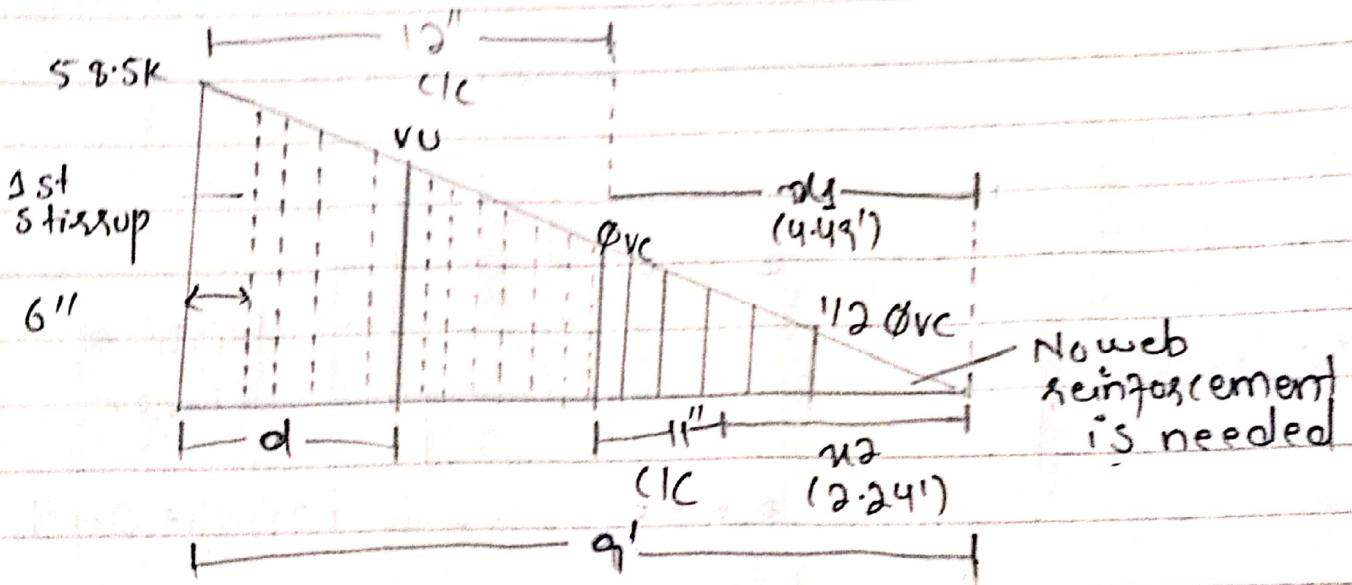 12"
58.5K
C/C
VU
1st
stirrup
x1
(4.49')
φVC
6"
1/2 φVC
No web
reinforcement
is needed
d
11"
C/C
x2
(2.24')
9'